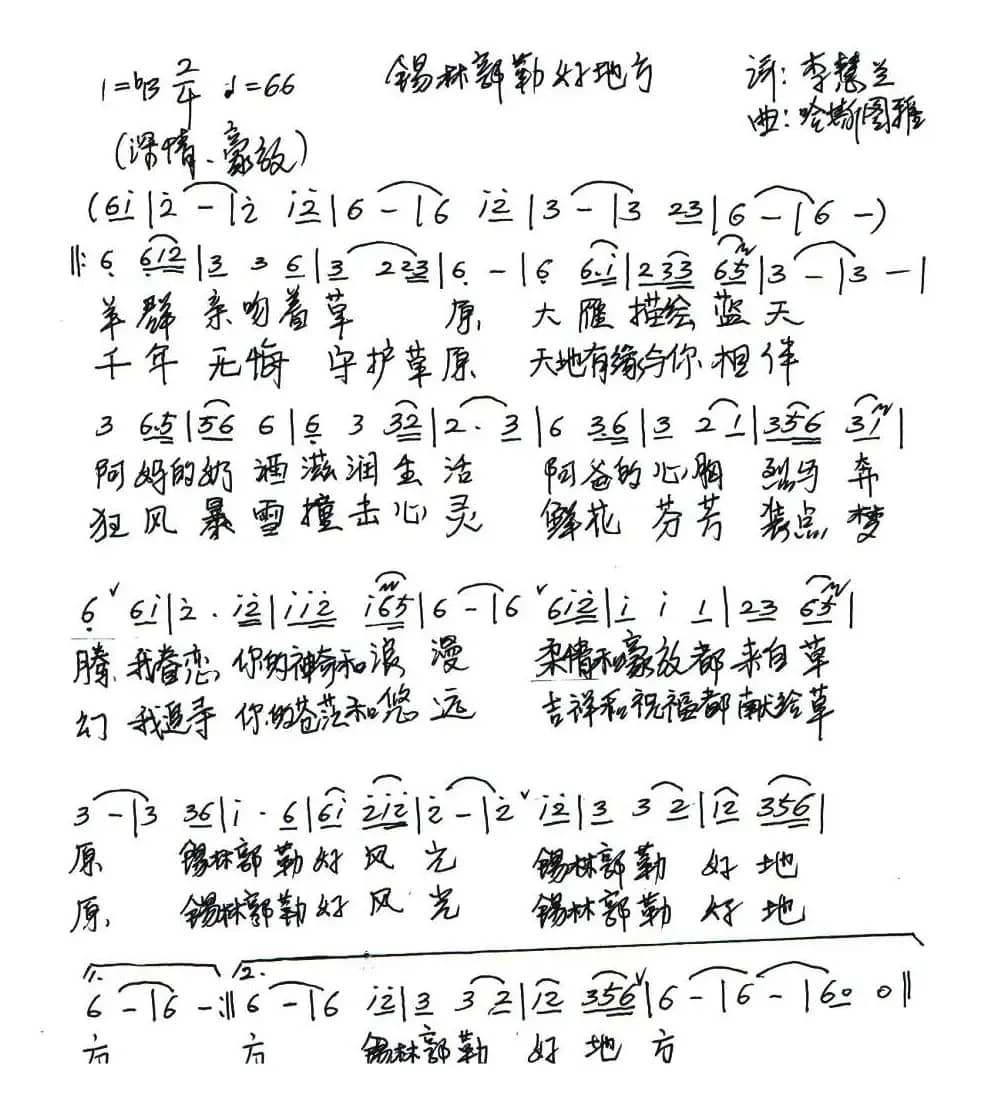 1=bB 2/4 ♩=66 锡林郭勒好地方 词：李慧兰
(深情、豪放) 曲：哈斯图雅
(6i|2̇ - |2̇ i2̇|6 - |6 i2̇|3 - |3 23|6 - |6 -)
‖: 6̣ 6̣12|3 3 6̣|3 223|6̣ - |6̣ 6̣.1|233 6̣5̣|3 - |3 - |
羊群 亲吻着草 原 大雁描绘蓝天
千年 无悔 守护草原 天地有缘与你相伴
3 6.5|56 6|6̣ 3 32|2. 3|6 36|3 2 1|356 31|
阿妈的奶 酒滋润生活 阿爸的心胸 烈马 奔
狂风暴雪撞击心灵 鲜花 芬芳 装点 梦
6̣ ∨ 6i|2̇. i2̇|ii2̇ i65|6 - |6 ∨ 6i2̇|i i 1|23 65|
腾 我眷恋 你的神奇和浪 漫 柔情和豪放都来自草
幻 我追寻 你的苍茫和悠 远 吉祥和祝福都献给草
3 - |3 36|i. 6|6i 2̇i2̇|2̇ - |2̇ ∨ i2̇|3 3 2|12 356|
原 锡林郭勒好风光 锡林郭勒 好地
原 锡林郭勒好风光 锡林郭勒 好地
1. 2.
6 - |6 - :‖ 6 - |6 i2̇|3 3 2|12 356 ∨|6 - |6 - |60 0‖
方 方 锡林郭勒 好地方